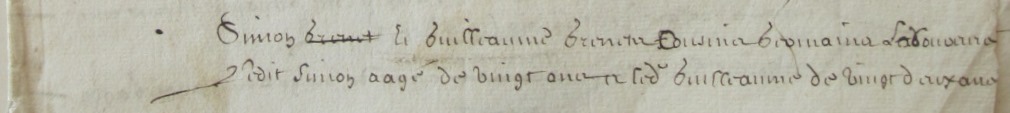 Simon brenet Et Guilleaume brenetz Cousins Germains Laboureurs
Ledit Simon aagé de vingt ans et led^t Guilleaume de vingt deux ans